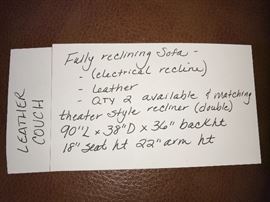 LEATHER
COUCH
Fully reclining Sofa -
- (electrical recline)
- Leather
- QTY 2 available & matching
theater style recliner (double)
90"L x 38"D x 36" back ht
18" seat ht 22" arm ht